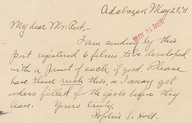 Adabazar, May 28, '11
My dear Mr. Peet,
I am sending by this
post registered 6 films to be developed
with a print of each, if good. Please
have them rush this, as I may get
orders filled for the cadets before they
leave. Yours truly,
Sophie S. Holt.